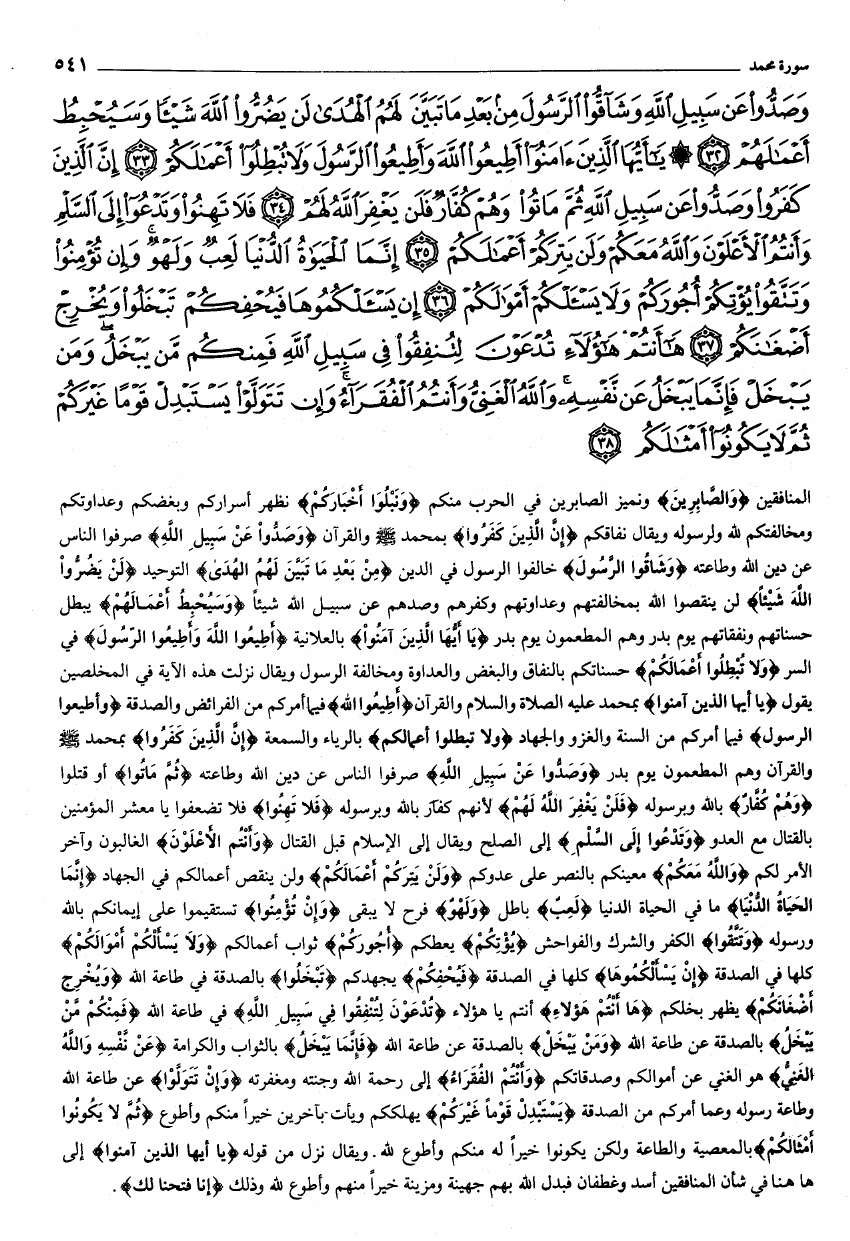 سورة محمد ٥٤١
وَصَدُّوا۟ عَن سَبِيلِ ٱللَّهِ وَشَآقُّوا۟ ٱلرَّسُولَ مِنۢ بَعْدِ مَا تَبَيَّنَ لَهُمُ ٱلْهُدَىٰ لَن يَضُرُّوا۟ ٱللَّهَ شَيْـًٔا وَسَيُحْبِطُ
أَعْمَـٰلَهُمْ ٣٢ ۞ يَـٰٓأَيُّهَا ٱلَّذِينَ ءَامَنُوٓا۟ أَطِيعُوا۟ ٱللَّهَ وَأَطِيعُوا۟ ٱلرَّسُولَ وَلَا تُبْطِلُوٓا۟ أَعْمَـٰلَكُمْ ٣٣ إِنَّ ٱلَّذِينَ
كَفَرُوا۟ وَصَدُّوا۟ عَن سَبِيلِ ٱللَّهِ ثُمَّ مَاتُوا۟ وَهُمْ كُفَّارٌ فَلَن يَغْفِرَ ٱللَّهُ لَهُمْ ٣٤ فَلَا تَهِنُوا۟ وَتَدْعُوٓا۟ إِلَى ٱلسَّلْمِ
وَأَنتُمُ ٱلْأَعْلَوْنَ وَٱللَّهُ مَعَكُمْ وَلَن يَتِرَكُمْ أَعْمَـٰلَكُمْ ٣٥ إِنَّمَا ٱلْحَيَوٰةُ ٱلدُّنْيَا لَعِبٌ وَلَهْوٌ ۚ وَإِن تُؤْمِنُوا۟
وَتَتَّقُوا۟ يُؤْتِكُمْ أُجُورَكُمْ وَلَا يَسْـَٔلْكُمْ أَمْوَٰلَكُمْ ٣٦ إِن يَسْـَٔلْكُمُوهَا فَيُحْفِكُمْ تَبْخَلُوا۟ وَيُخْرِجْ
أَضْغَـٰنَكُمْ ٣٧ هَـٰٓأَنتُمْ هَـٰٓؤُلَآءِ تُدْعَوْنَ لِتُنفِقُوا۟ فِى سَبِيلِ ٱللَّهِ فَمِنكُم مَّن يَبْخَلُ ۖ وَمَن
يَبْخَلْ فَإِنَّمَا يَبْخَلُ عَن نَّفْسِهِۦ ۚ وَٱللَّهُ ٱلْغَنِىُّ وَأَنتُمُ ٱلْفُقَرَآءُ ۚ وَإِن تَتَوَلَّوْا۟ يَسْتَبْدِلْ قَوْمًا غَيْرَكُمْ
ثُمَّ لَا يَكُونُوٓا۟ أَمْثَـٰلَكُم ٣٨
المنافقين ﴿وَالصَّابِرِينَ﴾ ونميز الصابرين في الحرب منكم ﴿وَنَبْلُوَا أَخْبَارَكُمْ﴾ نظهر أسراركم وبغضكم وعداوتكم
ومخالفتكم لله ولرسوله ويقال نفاقكم ﴿إِنَّ الَّذِينَ كَفَرُوا﴾ بمحمد ﷺ والقرآن ﴿وَصَدُّواْ عَنْ سَبِيلِ اللَّهِ﴾ صرفوا الناس
عن دين الله وطاعته ﴿وَشَاقُّوا الرَّسُولَ﴾ خالفوا الرسول في الدين ﴿مِنْ بَعْدِ مَا تَبَيَّنَ لَهُمُ الهُدَىٰ﴾ التوحيد ﴿لَنْ يَضُرُّواْ
اللَّهَ شَيْئاً﴾ لن ينقصوا الله بمخالفتهم وعداوتهم وكفرهم وصدهم عن سبيل الله شيئاً ﴿وَسَيُحْبِطُ أَعْمَالَهُمْ﴾ يبطل
حسناتهم ونفقاتهم يوم بدر وهم المطعمون يوم بدر ﴿يَا أَيُّهَا الَّذِينَ آمَنُواْ﴾ بالعلانية ﴿أَطِيعُوا اللَّهَ وَأَطِيعُوا الرَّسُولَ﴾ في
السر ﴿وَلَا تُبْطِلُوا أَعْمَالَكُمْ﴾ حسناتكم بالنفاق والبغض والعداوة ومخالفة الرسول ويقال نزلت هذه الآية في المخلصين
يقول ﴿يا أيها الذين آمنوا﴾ بمحمد عليه الصلاة والسلام والقرآن ﴿أَطِيعُوا الله﴾ فيما أمركم من الفرائض والصدقة ﴿وأطيعوا
الرسول﴾ فيما أمركم من السنة والغزو والجهاد ﴿ولا تبطلوا أعمالكم﴾ بالرياء والسمعة ﴿إِنَّ الَّذِينَ كَفَرُوا﴾ بمحمد ﷺ
والقرآن وهم المطعمون يوم بدر ﴿وَصَدُّوا عَنْ سَبِيلِ اللَّهِ﴾ صرفوا الناس عن دين الله وطاعته ﴿ثُمَّ مَاتُوا﴾ أو قتلوا
﴿وَهُمْ كُفَّارٌ﴾ بالله وبرسوله ﴿فَلَنْ يَغْفِرَ اللَّهُ لَهُمْ﴾ لأنهم كفار بالله وبرسوله ﴿فَلَا تَهِنُوا﴾ فلا تضعفوا يا معشر المؤمنين
بالقتال مع العدو ﴿وَتَدْعُوا إِلَى السَّلْمِ﴾ إلى الصلح ويقال إلى الإسلام قبل القتال ﴿وَأَنْتُم الأَعْلَوْنَ﴾ الغالبون وآخر
الأمر لكم ﴿وَاللَّهُ مَعَكُمْ﴾ معينكم بالنصر على عدوكم ﴿وَلَنْ يَتِرَكُمْ أَعْمَالَكُمْ﴾ ولن ينقص أعمالكم في الجهاد ﴿إِنَّمَا
الحَيَاةُ الدُّنْيَا﴾ ما في الحياة الدنيا ﴿لَعِبٌ﴾ باطل ﴿وَلَهْوٌ﴾ فرح لا يبقى ﴿وَإِنْ تُؤْمِنُوا﴾ تستقيموا على إيمانكم بالله
ورسوله ﴿وَتَتَّقُوا﴾ الكفر والشرك والفواحش ﴿يُؤْتِكُمْ﴾ يعطكم ﴿أُجُورَكُمْ﴾ ثواب أعمالكم ﴿وَلَا يَسْأَلْكُمْ أَمْوَالَكُمْ﴾
كلها في الصدقة ﴿إِنْ يَسْأَلْكُمُوهَا﴾ كلها في الصدقة ﴿فَيُحْفِكُمْ﴾ يجهدكم ﴿تَبْخَلُوا﴾ بالصدقة في طاعة الله ﴿وَيُخْرِجْ
أَضْغَانَكُمْ﴾ يظهر بخلكم ﴿هَا أَنْتُمْ هَؤلَاءِ﴾ أنتم يا هؤلاء ﴿تُدْعَوْنَ لِتُنْفِقُوا فِي سَبِيلِ اللَّهِ﴾ في طاعة الله ﴿فَمِنْكُمْ مَّنْ
يَبْخَلُ﴾ بالصدقة عن طاعة الله ﴿وَمَنْ يَبْخَلْ﴾ بالصدقة عن طاعة الله ﴿فَإِنَّمَا يَبْخَلُ﴾ بالثواب والكرامة ﴿عَنْ نَّفْسِهِ وَاللَّهُ
الغَنِيُّ﴾ هو الغني عن أموالكم وصدقاتكم ﴿وَأَنْتُمُ الفُقَرَاءُ﴾ إلى رحمة الله وجنته ومغفرته ﴿وَإِنْ تَتَوَلَّوْا﴾ عن طاعة الله
وطاعة رسوله وعما أمركم من الصدقة ﴿يَسْتَبْدِلْ قَوْماً غَيْرَكُمْ﴾ يهلككم ويأت بآخرين خيراً منكم وأطوع ﴿ثُمَّ لَا يَكُونُوا
أَمْثَالَكُمْ﴾ بالمعصية والطاعة ولكن يكونوا خيراً له منكم وأطوع لله. ويقال نزل من قوله ﴿يا أيها الذين آمنوا﴾ إلى
ها هنا في شأن المنافقين أسد وغطفان فبدل الله بهم جهينة ومزينة خيراً منهم وأطوع لله وذلك ﴿إنا فتحنا لك﴾.